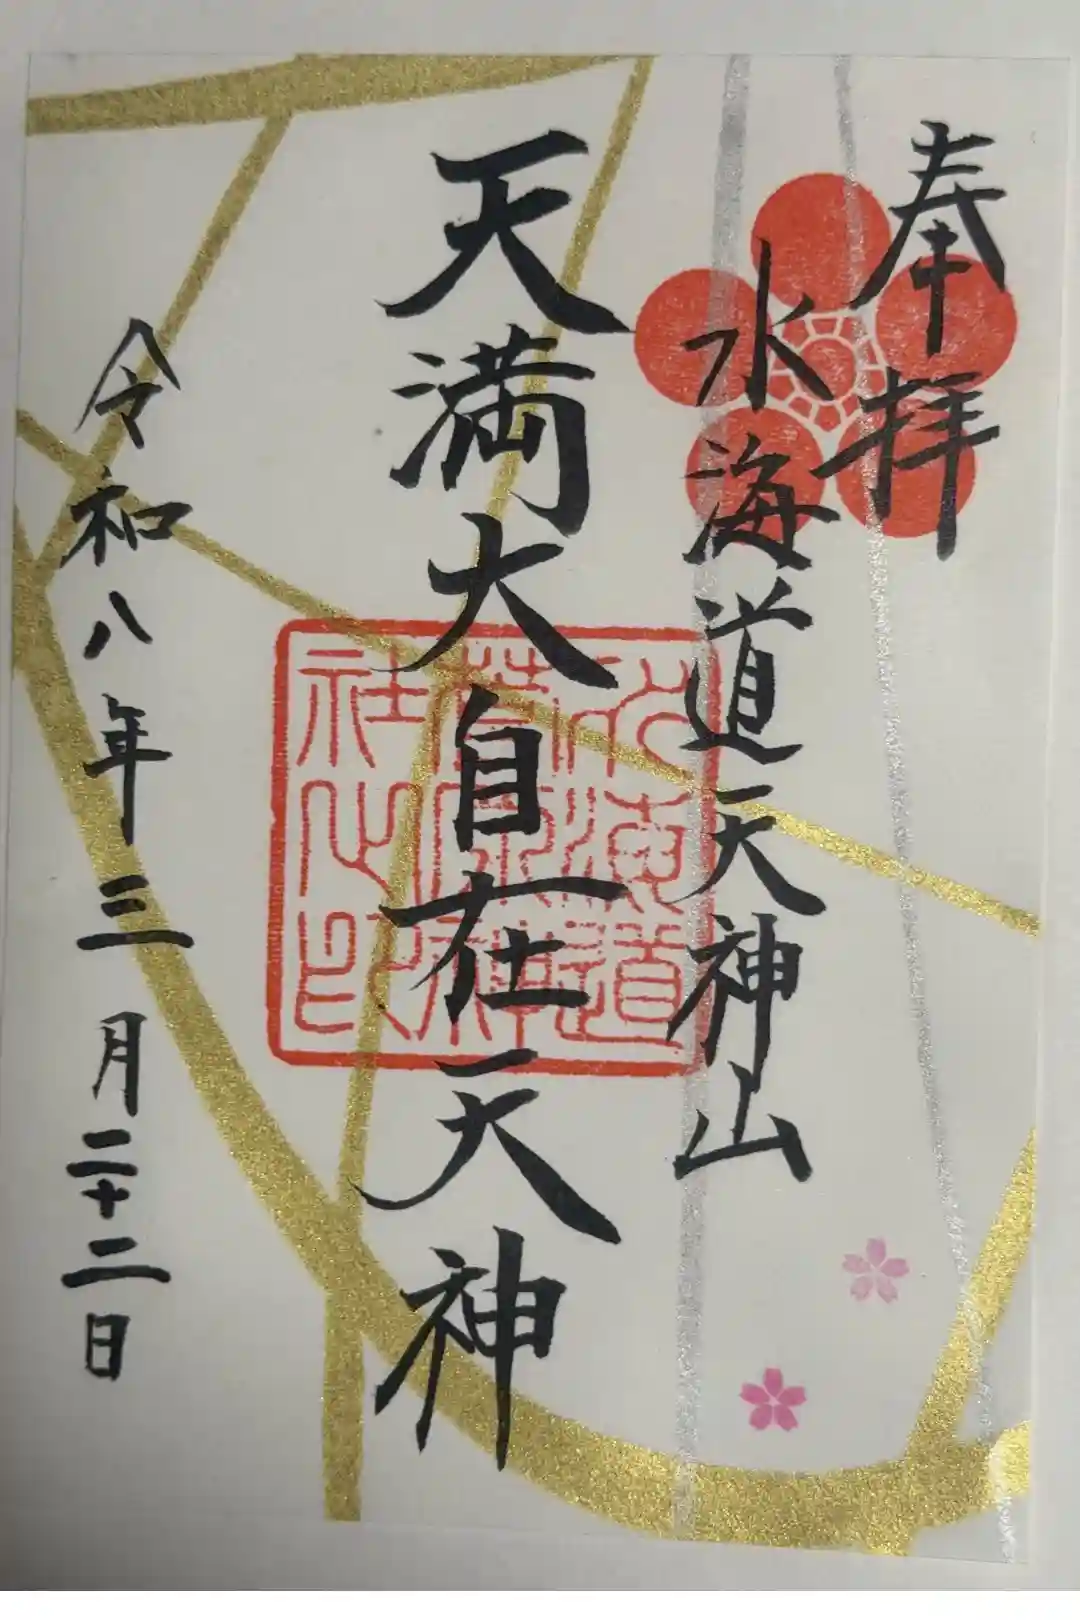 奉拝
水海道天神山
天満大自在天神
令和八年三月二十二日
水海道
菅原神
社之印